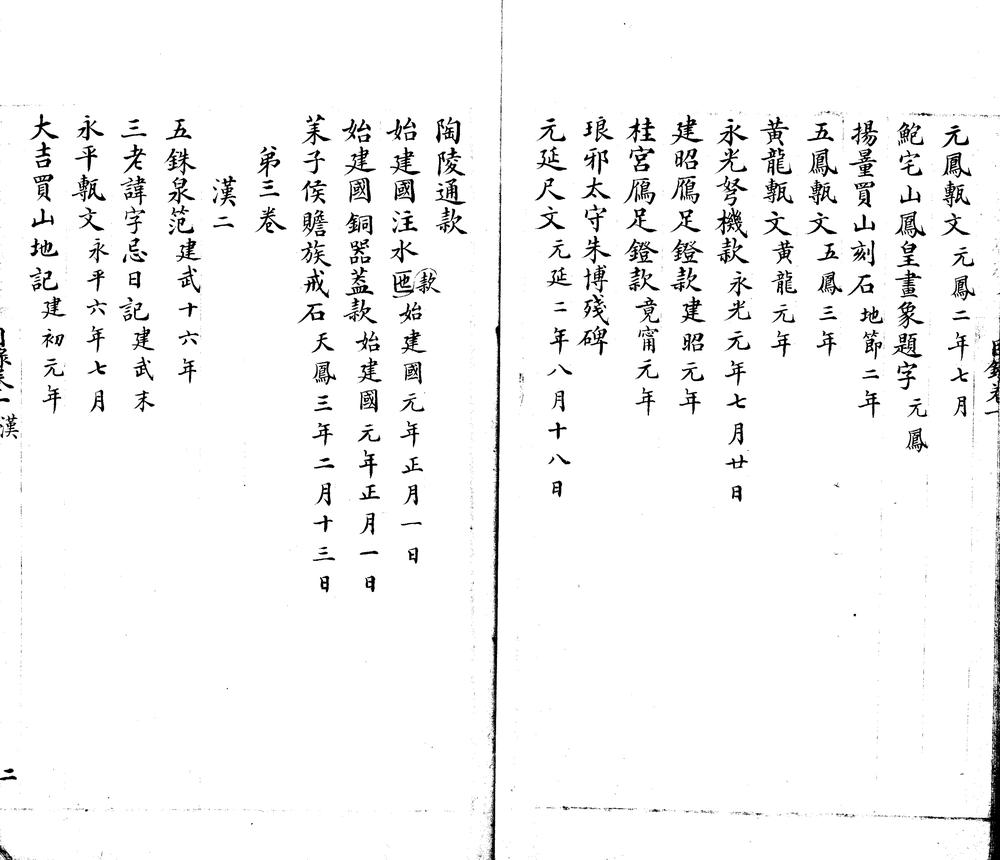 元鳳甎文元鳳二年七月
鮑宅山鳳皇畫象題字元鳳
揚量買山刻石地節二年
五鳳甎文五鳳三年
黃龍甎文黃龍元年
永光弩機款永光元年七月廿日
建昭鴈足鐙款建昭元年
桂宮鴈足鐙款竟甯元年
琅邪太守朱博殘碑
元延尺文元延二年八月十八日
陶陵通款
始建國注水匜款始建國元年正月一日
始建國銅器蓋款始建國元年正月一日
茉子侯贍族戒石天鳳三年二月十三日
弟三卷
漢二
五銖泉笵建武十六年
三老諱字忌日記建武末
永平甎文永平六年七月
大吉買山地記建初元年
漢
二